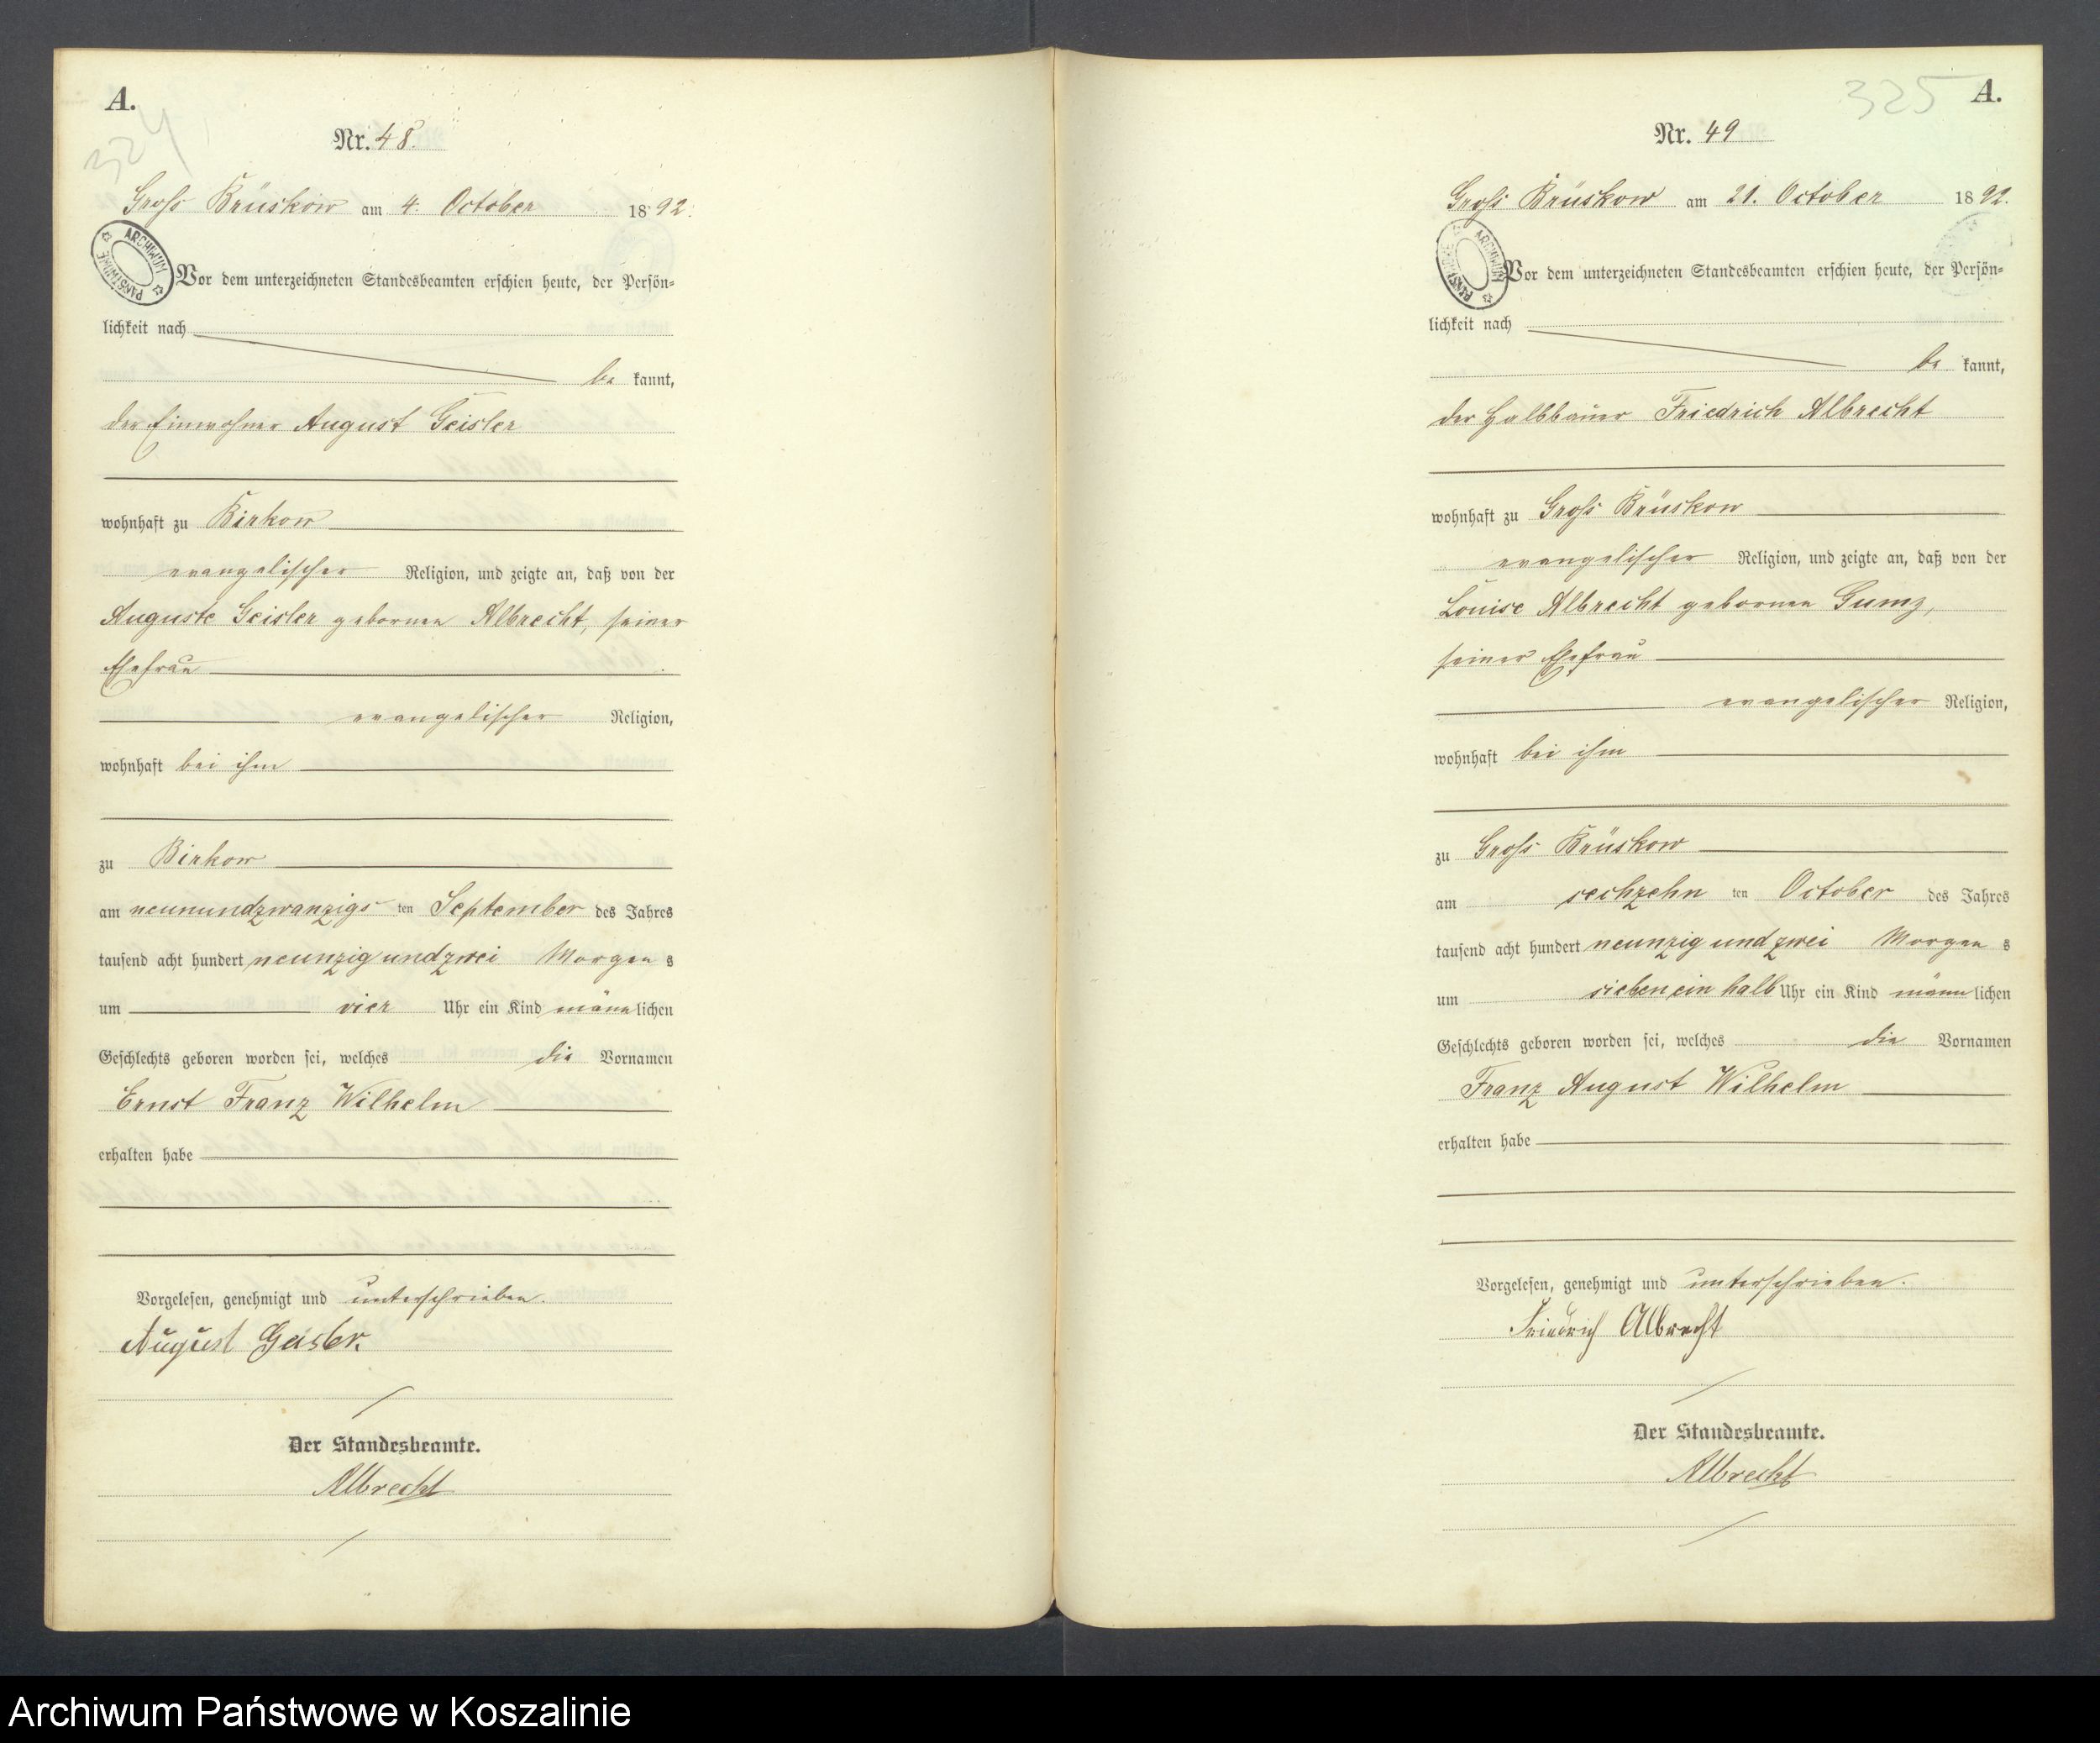 A.
324
Nr. 48.
Gross Brüskow am 4. October 1892.
ARCHIWUM PAŃSTWOWE
Vor dem unterzeichneten Standesbeamten erschien heute, der Persön=
lichkeit nach
be kannt,
der Einwohner August Geisler
wohnhaft zu Birkow
evangelischer Religion, und zeigte an, daß von der
Auguste Geisler gebornen Albrecht, seiner
Ehefrau
evangelischer Religion,
wohnhaft bei ihm
zu Birkow
am neunundzwanzigs ten September des Jahres
tausend acht hundert neunzig und zwei Morgen s
um vier Uhr ein Kind männlichen
Geschlechts geboren worden sei, welches die Vornamen
Ernst Franz Wilhelm
erhalten habe
Vorgelesen, genehmigt und unterschrieben.
August Geisler.
Der Standesbeamte.
Albrecht
325
A.
Nr. 49
Gross Brüskow am 21. October 1892.
ARCHIWUM PAŃSTWOWE
Vor dem unterzeichneten Standesbeamten erschien heute, der Persön=
lichkeit nach
be kannt,
der Halbbauer Friedrich Albrecht
wohnhaft zu Gross Brüskow
evangelischer Religion, und zeigte an, daß von der
Louise Albrecht gebornen Gumz,
seiner Ehefrau
evangelischer Religion,
wohnhaft bei ihm
zu Gross Brüskow
am sechzehn ten October des Jahres
tausend acht hundert neunzig und zwei Morgen s
um sieben ein halb Uhr ein Kind männlichen
Geschlechts geboren worden sei, welches die Vornamen
Franz August Wilhelm
erhalten habe
Vorgelesen, genehmigt und unterschrieben.
Friedrich Albrecht
Der Standesbeamte.
Albrecht
Archiwum Państwowe w Koszalinie